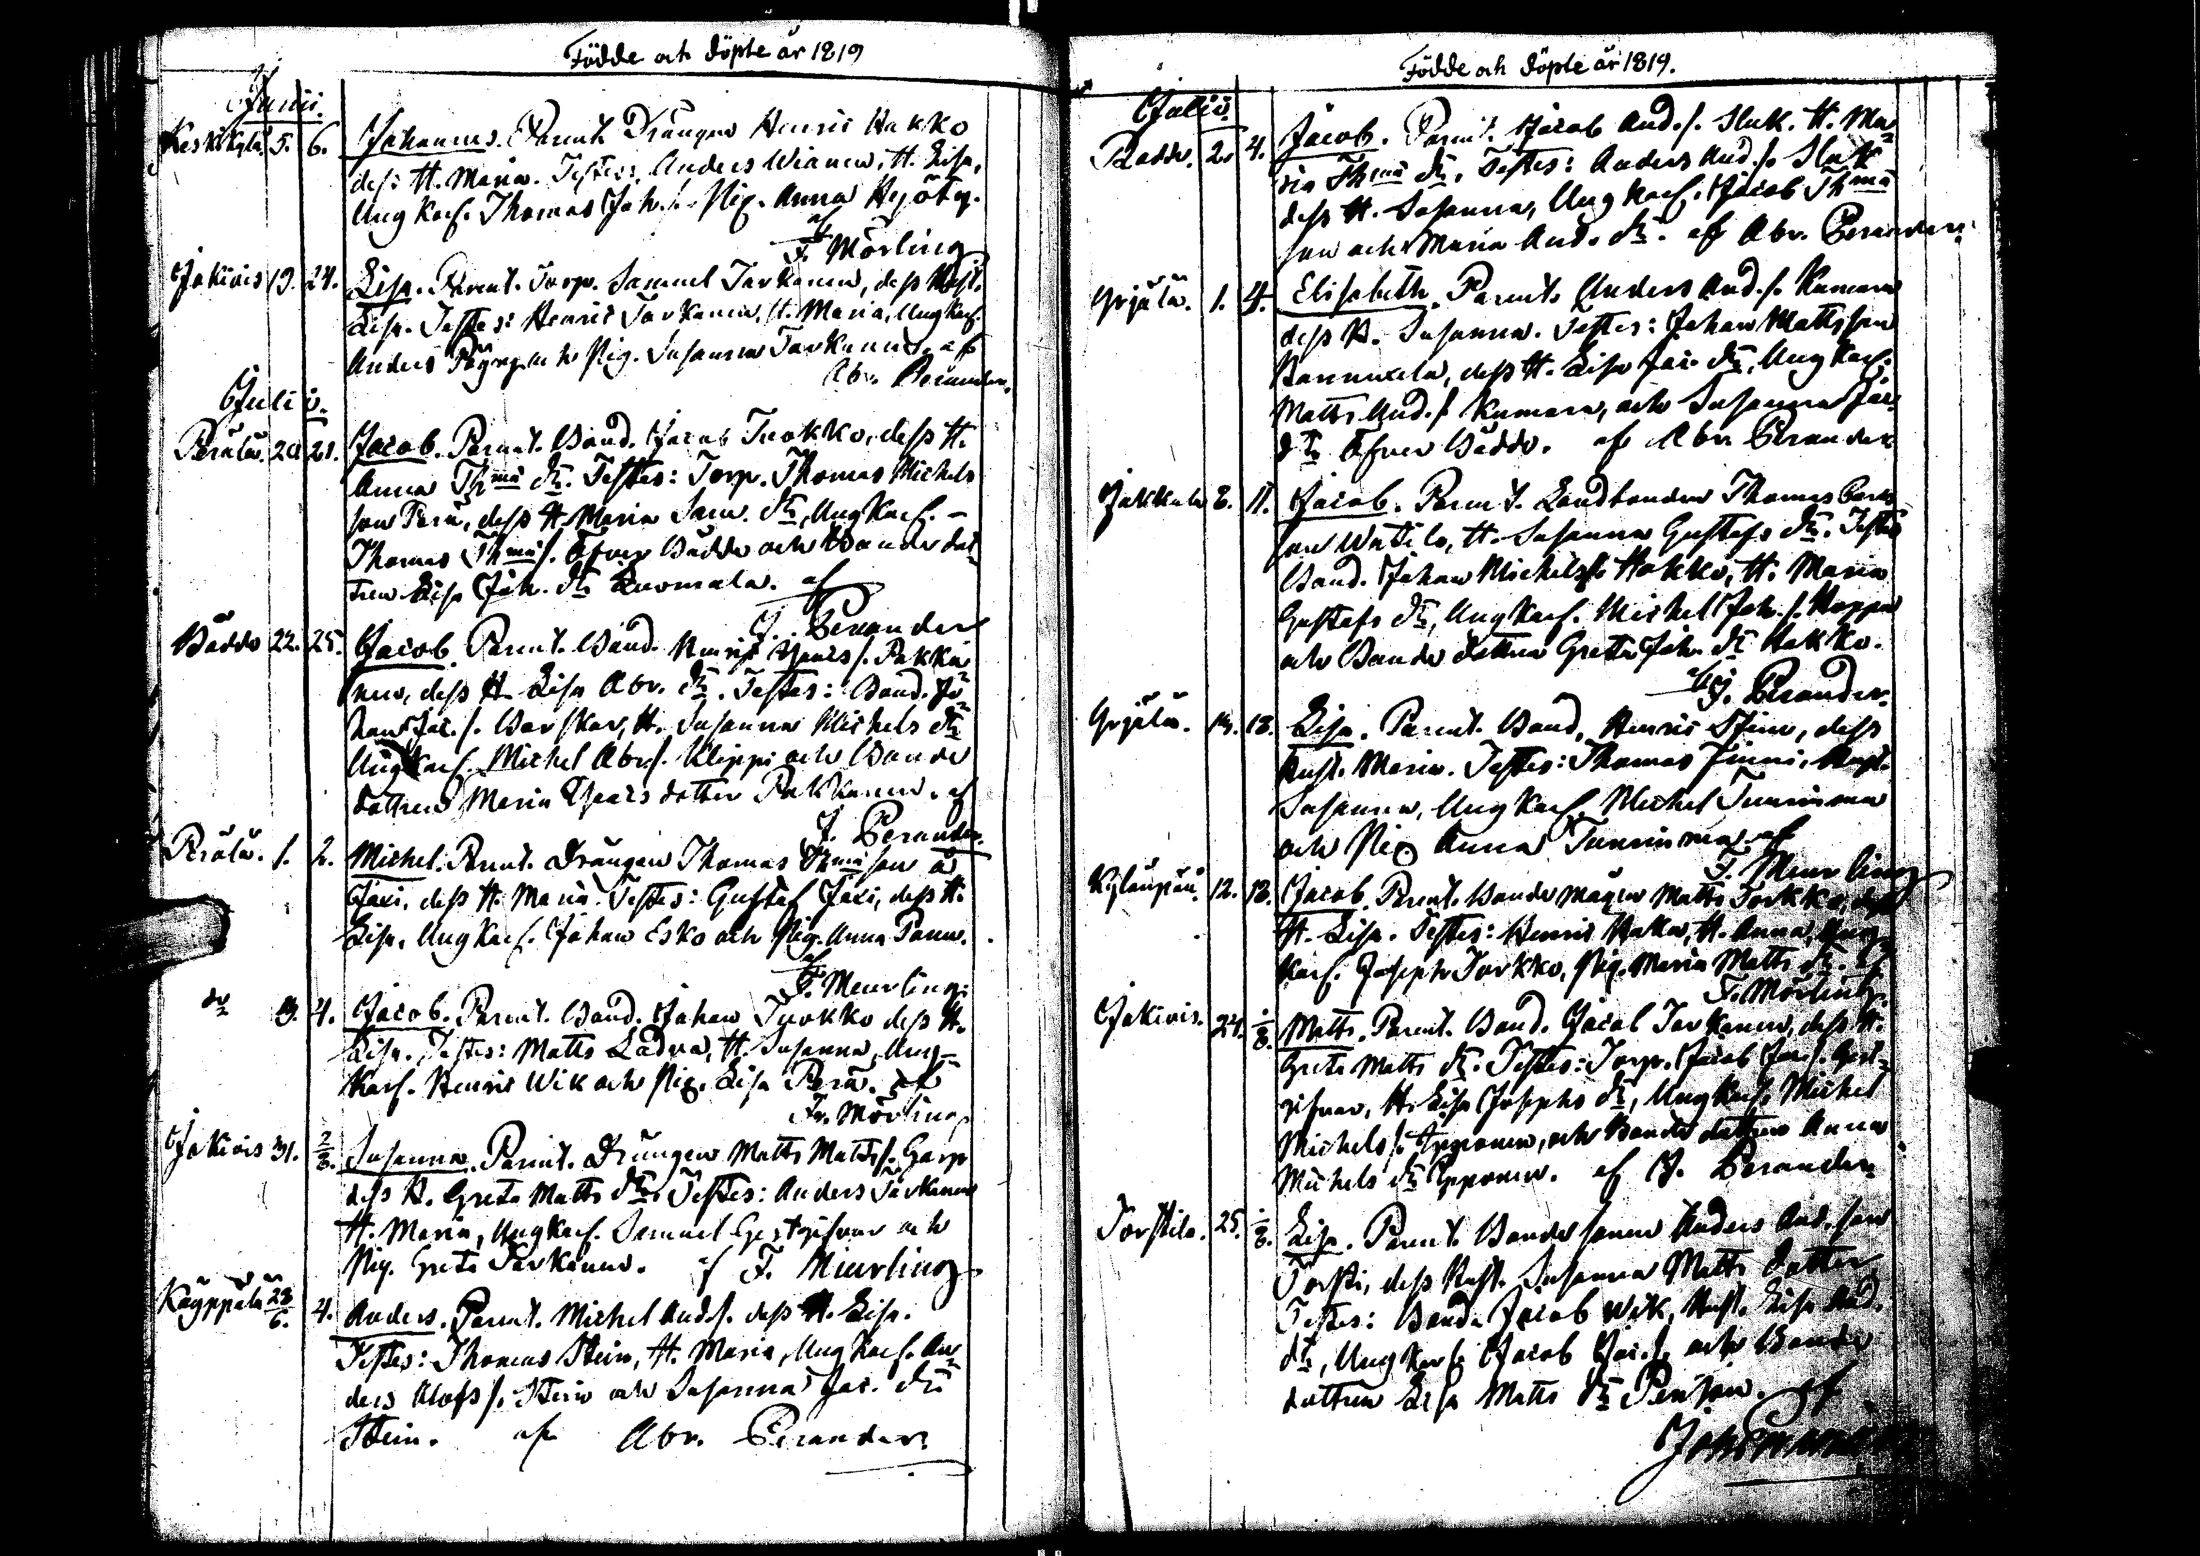 Födde och döpte år 1819
Junii.
Keskikylä. 5. 6. Johannes. Parent. Drängen Henric Hakko
dess H. Maria. Testes: Anders Wianen, H. Lisa,
Ung Karl. Thomas Joh. s. Pig. Anna
af
F. Mörling
Jakivis 19. 24. Lisa. Parent. Torp. Samuel Tarkanen, dess Hust.
Lisa. Testes: Henric Tarkanen, H. Maria, Ung Karl.
Anders och Pig. Susanna Tarkanen. af
Abr. Perander.
Julii.
Perälä. 20 21. Jacob. Parent. Bond. Jacob Tuokko, dess H.
Anna Thmæ dr. Testes: Torp. Thomas Michels
son Perä, dess H. Maria Sam. dr, Ung Karl. –
Thomas Thmæ s. Öfver Bäddo och Bonde dot
tren Lisa Joh. dr Luomala. af
J. Perander
Bäddo 22. 25. Jacob. Parent. Bond. Henric s. Pakka
nen, dess H. Lisa Abr. dr. Testes: Bond. Jo
han Jac. s. Barskar, H. Susanna Michels dr
Ung Karl. Michel Abr. s. Klippi och Bonde
dottren Maria dotter Pakkanen. af
J. Perander.
Perälä. 1. 2. Michel. Parent. Drängen Thomas Thmæ son å
Jäxi, dess H. Maria. Testes: Gustaf Jäxi, dess H.
Lisa, Ung Karl. Johan Esko och Pig. Anna
af
F. Meurling.
do 3. 4. Jacob. Parent. Bond. Johan Tuokko dess H.
Lisa. Testes: Matts H. Susanna, Ung
Karl. Henric Wik och Pig. Lisa Perä. af
Fr. Mörling
Jakivis 31. 2/8. Susanna. Parent. Drängen Matts Matts s.
dess H. Greta Matts dr. Testes: Anders Tarkanen
H. Maria, Ung Karl. Samuel Gestgifvar och
Pig. Greta Tarkanen. af F. Meurling
Käyppälä 28/6. 4. Anders. Parent. Michel And. s. dess H. Lisa.
Testes: Thomas Stein, H. Maria, Ung Karl. An
ders Olofs s. Stein och Susanna Jac. dr
Stein. af Abr. Perander.
Födde och döpte år 1819.
Julii.
Bäddo. 2. 4. Jacob. Parent. Jacob And. s. Sluk. H. Ma
ria Thmæ dr. Testes: Anders And. s. Sluk
dess H. Susanna, Ung Karl. Jacob Thmæ
son och Maria And. dr. af Abr. Perander.
Yrjälä. 1. 4. Elisabeth. Parent. Anders And. s. Kumara
dess H. Susanna. Testes: Johan Matts son
dess H. Lisa Jac. dr, Ung Karl.
Matts And. s. Kumara, och Susanna Jac.
dr Öfver Bäddo. af Abr. Perander
Jakkula 8. 11. Jacob. Parent. Landbonden Thomas
son H. Susanna Gustafs dr. Testes
Bond. Johan Michels s. Hakko, H. Maria
Gustafs dr, Ung Karl. Michel Joh. s.
och Bonde dottren Greta Joh. dr Hakko.
af J. Perander.
Yrjälä. 14. 18. Lisa. Parent. Bond, Henric dess
Hust. Maria. Testes: Thomas Finni, Hust.
Susanna, Ung Karl. Michel
och Pig. Anna af
F. Meurling
Kyläupää. 12. 18. Jacob. Parent. Bonde mågen Matts Torkko, dess
H. Lisa. Testes: Henric H. Anna, Ung
Karl. Joseph Torkko, Pig. Maria Matts dr. af
F. Mörling.
Jakivis. 24. 1/8. Matts. Parent. Bond. Jacob Tarkanen, dess H.
Greta Matts dr. Testes: Torp. Jacob Jac. s. Gest
gifvar, H. Lisa Josephs dr, Ung Karl. Michel
Michels s. och Bonde dottren Anna
Michels dr af J. Perander
Torstila. 25. 1/8. Lisa. Parent. Bonde sonen Anders And. son
Torsti, dess Hust. Susanna Matts dotter
Testes: Bond. Jacob Wik, Hust. Lisa And.
dr, Ung Karl. Jacob Jac. s. och Bonde
dottren Lisa Matts dr af